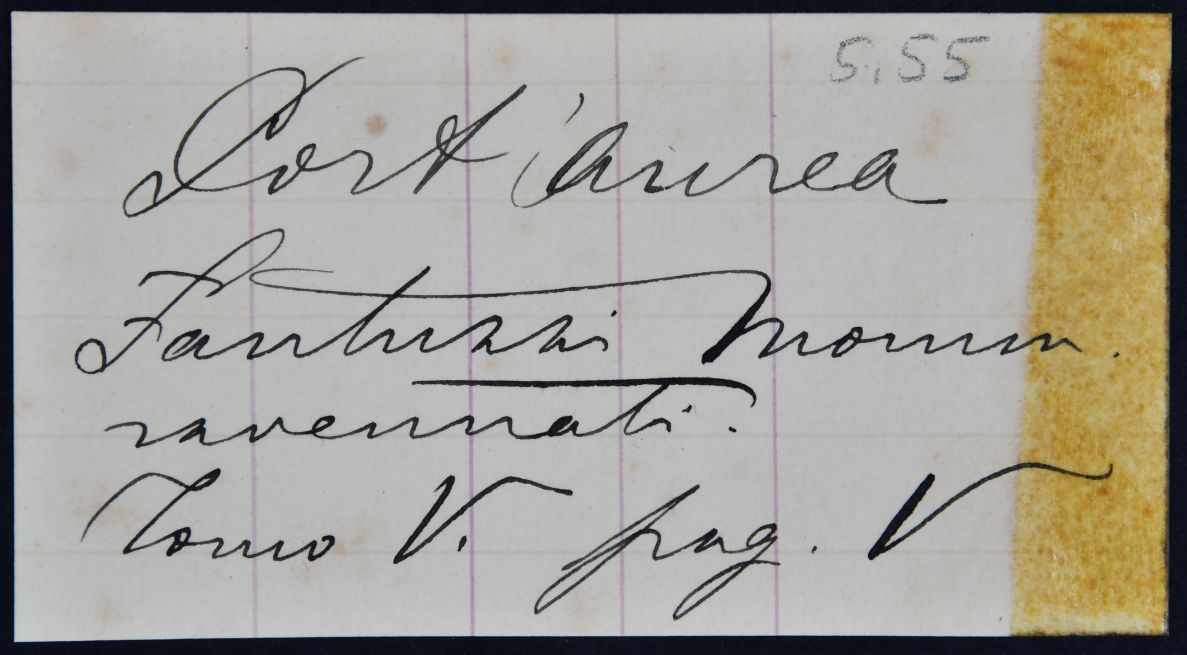 5.55
Port'aurea
Fantuzzi Monum.
ravennati.
Tomo V. pag. V